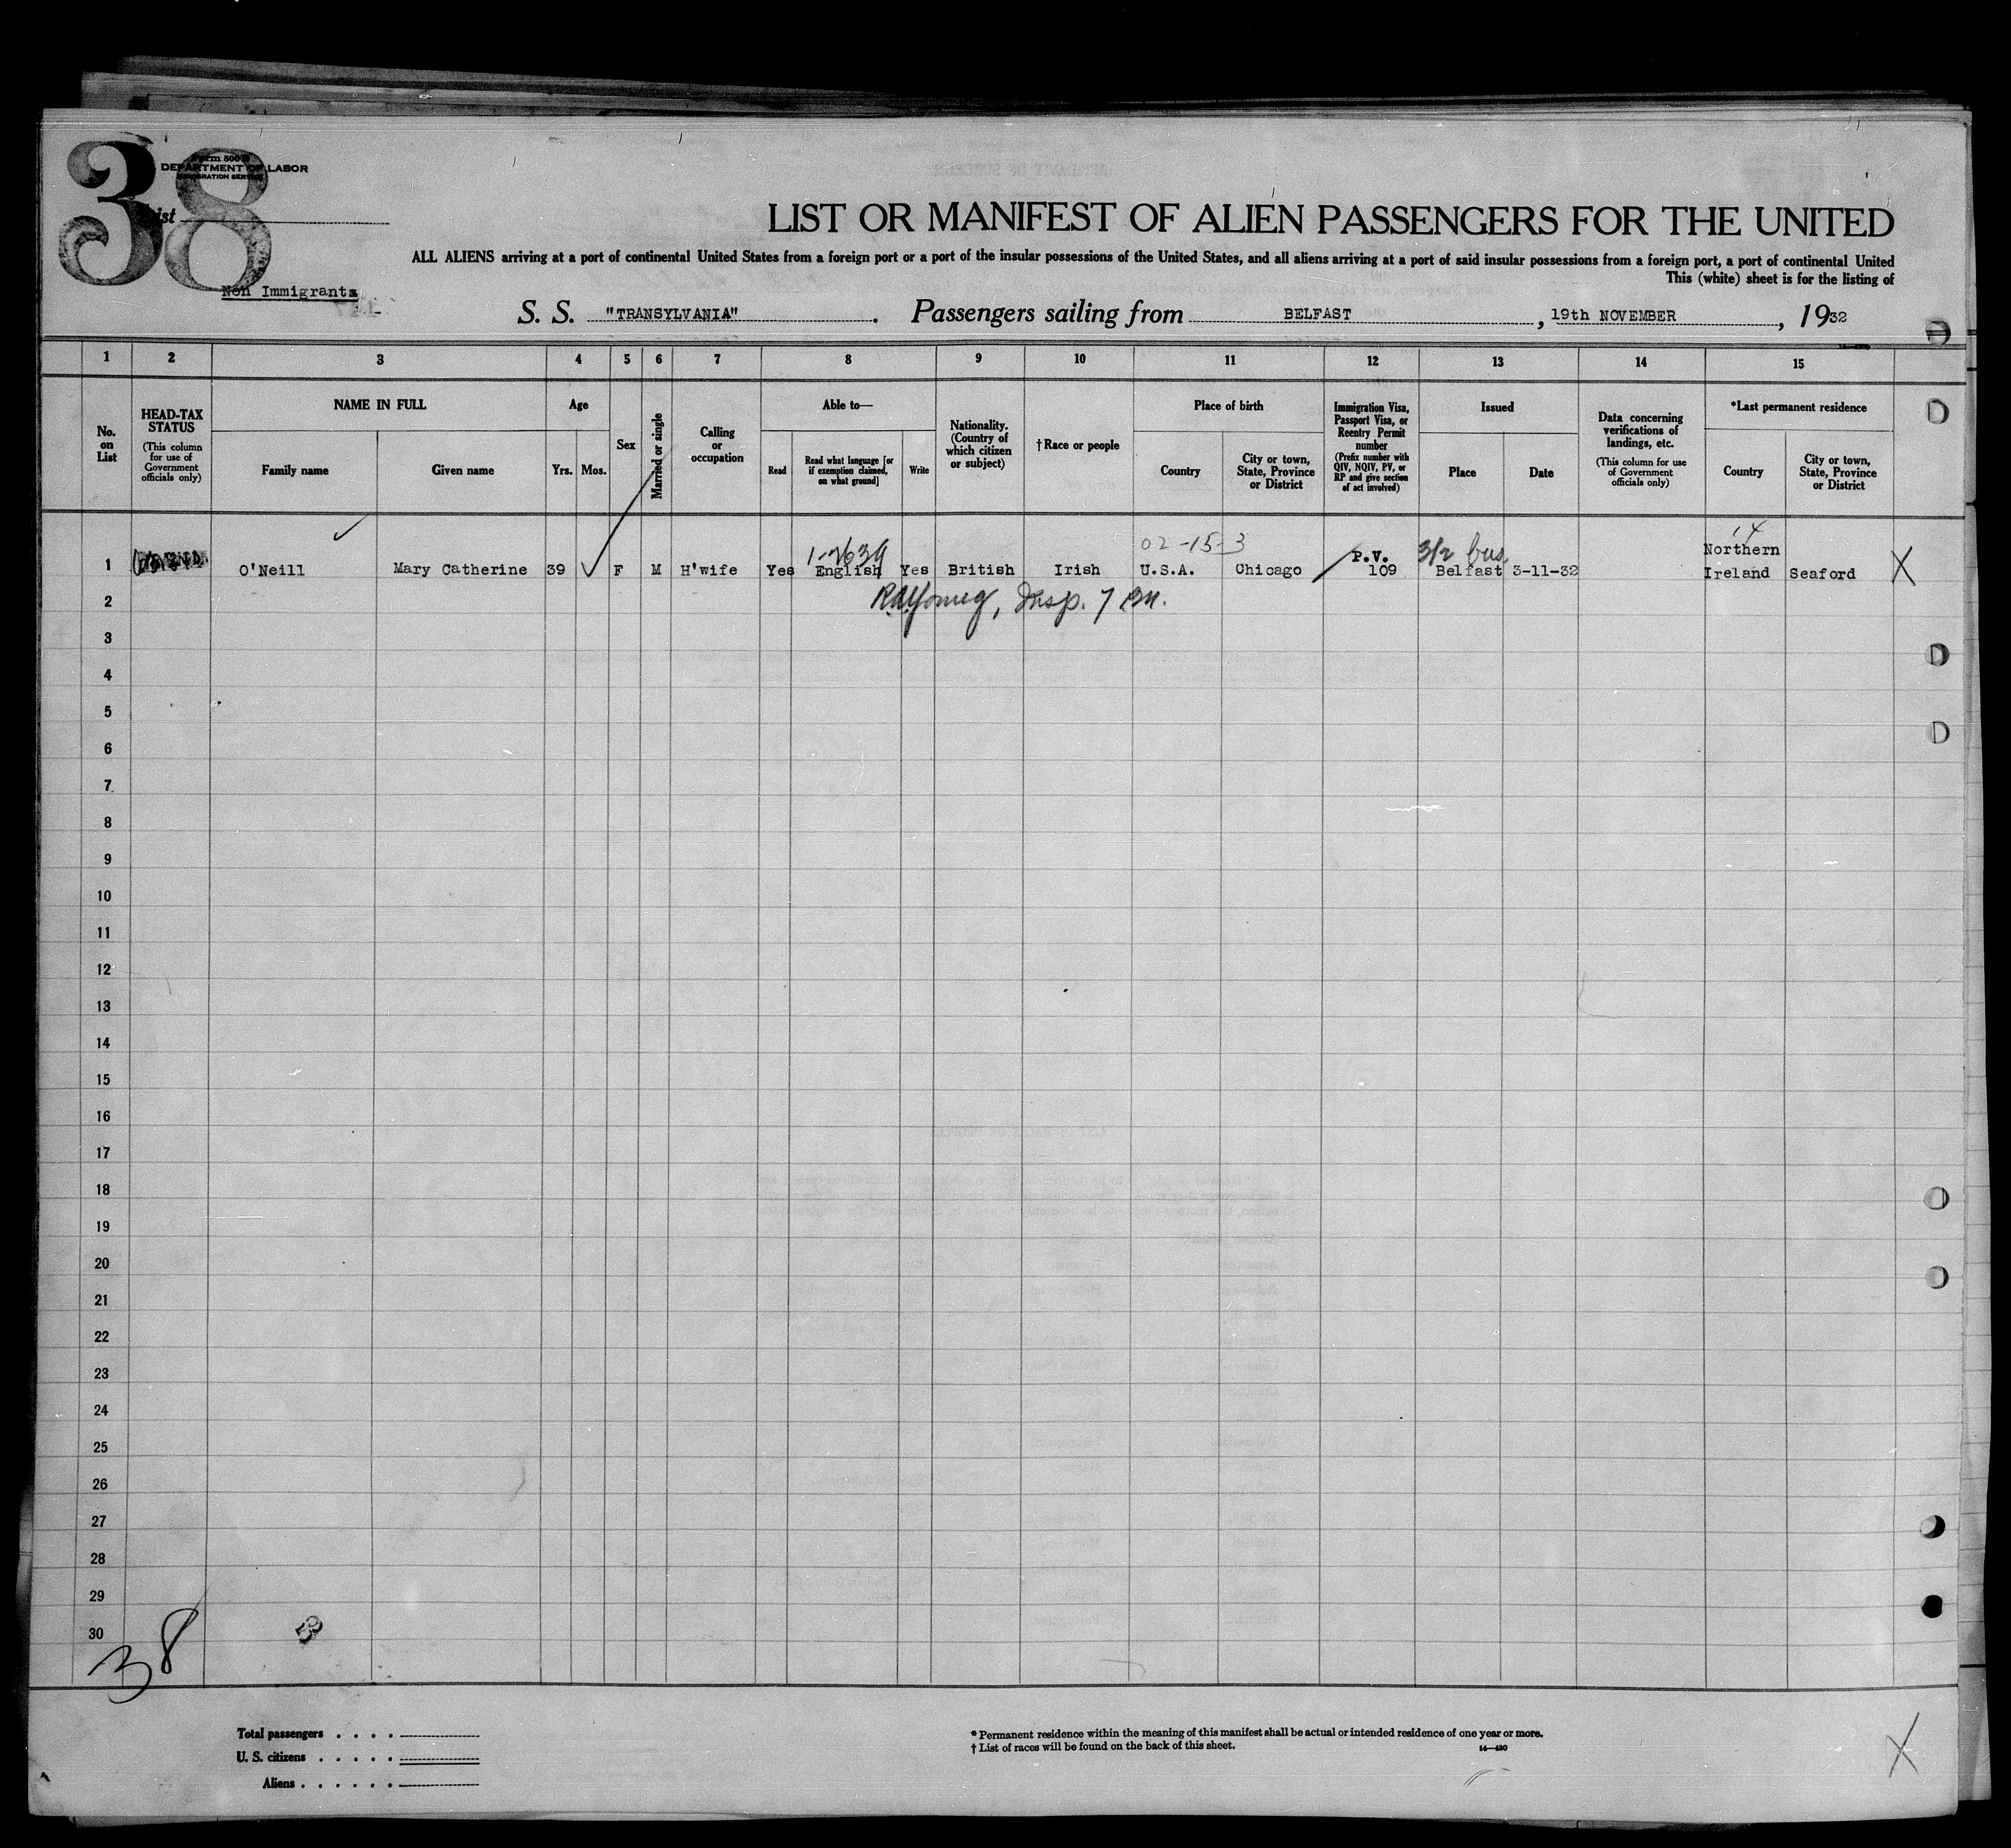 38
Form 500
DEPARTMENT OF LABOR
IMMIGRATION SERVICE
List
LIST OR MANIFEST OF ALIEN PASSENGERS FOR THE UNITED
ALL ALIENS arriving at a port of continental United States from a foreign port or a port of the insular possessions of the United States, and all aliens arriving at a port of said insular possessions from a foreign port, a port of continental United
This (white) sheet is for the listing of
Non Immigrants
S. S. "TRANSYLVANIA". Passengers sailing from BELFAST, 19th NOVEMBER, 1932
1 2 3 4 5 6 7 8 9 10 11 12 13 14 15
No. on List
HEAD-TAX STATUS (This column for use of Government officials only)
NAME IN FULL
Family name
Given name
Age
Yrs. Mos.
Sex
Married or single
Calling or occupation
Able to—
Read
Read what language [or if exemption claimed, on what ground]
Write
Nationality. (Country of which citizen or subject)
†Race or people
Place of birth
Country
City or town, State, Province or District
Immigration Visa, Passport Visa, or Reentry Permit number (Prefix number with QIV, NQIV, PV, or RP and give section of act involved)
Issued
Place
Date
Data concerning verifications of landings, etc. (This column for use of Government officials only)
*Last permanent residence
Country
City or town, State, Province or District
02-15-3
14
P.V. 3/2 bus. Northern
1 O'Neill Mary Catherine 39 F M H'wife Yes English Yes British Irish U.S.A. Chicago 109 Belfast 3-11-32 Ireland Seaford X
2 Insp.
3
4
5
6
7
8
9
10
11
12
13
14
15
16
17
18
19
20
21
22
23
24
25
26
27
28
29
30
38
Total passengers . . . .
U. S. citizens . . . . .
Aliens . . . . . .
* Permanent residence within the meaning of this manifest shall be actual or intended residence of one year or more.
† List of races will be found on the back of this sheet.
14—430
X